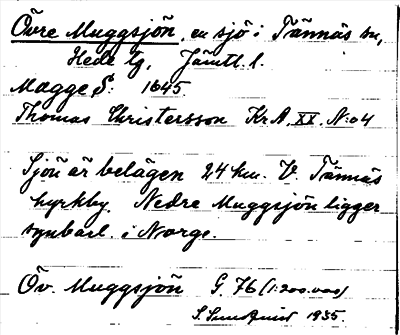 Övre Muggsjön, en sjö i Tännäs sn,
Hede tg, Jämtl. l.
Magge S: 1645
Thomas Christersson Kr.A. XX. N:o 4
Sjön är belägen 24 km. V. Tännäs
kyrkby. Nedre Muggsjön ligger
synbarl. i Norge.
Öv. Muggsjön G. 76 (1:200.000)
S. Sundquist 1935.